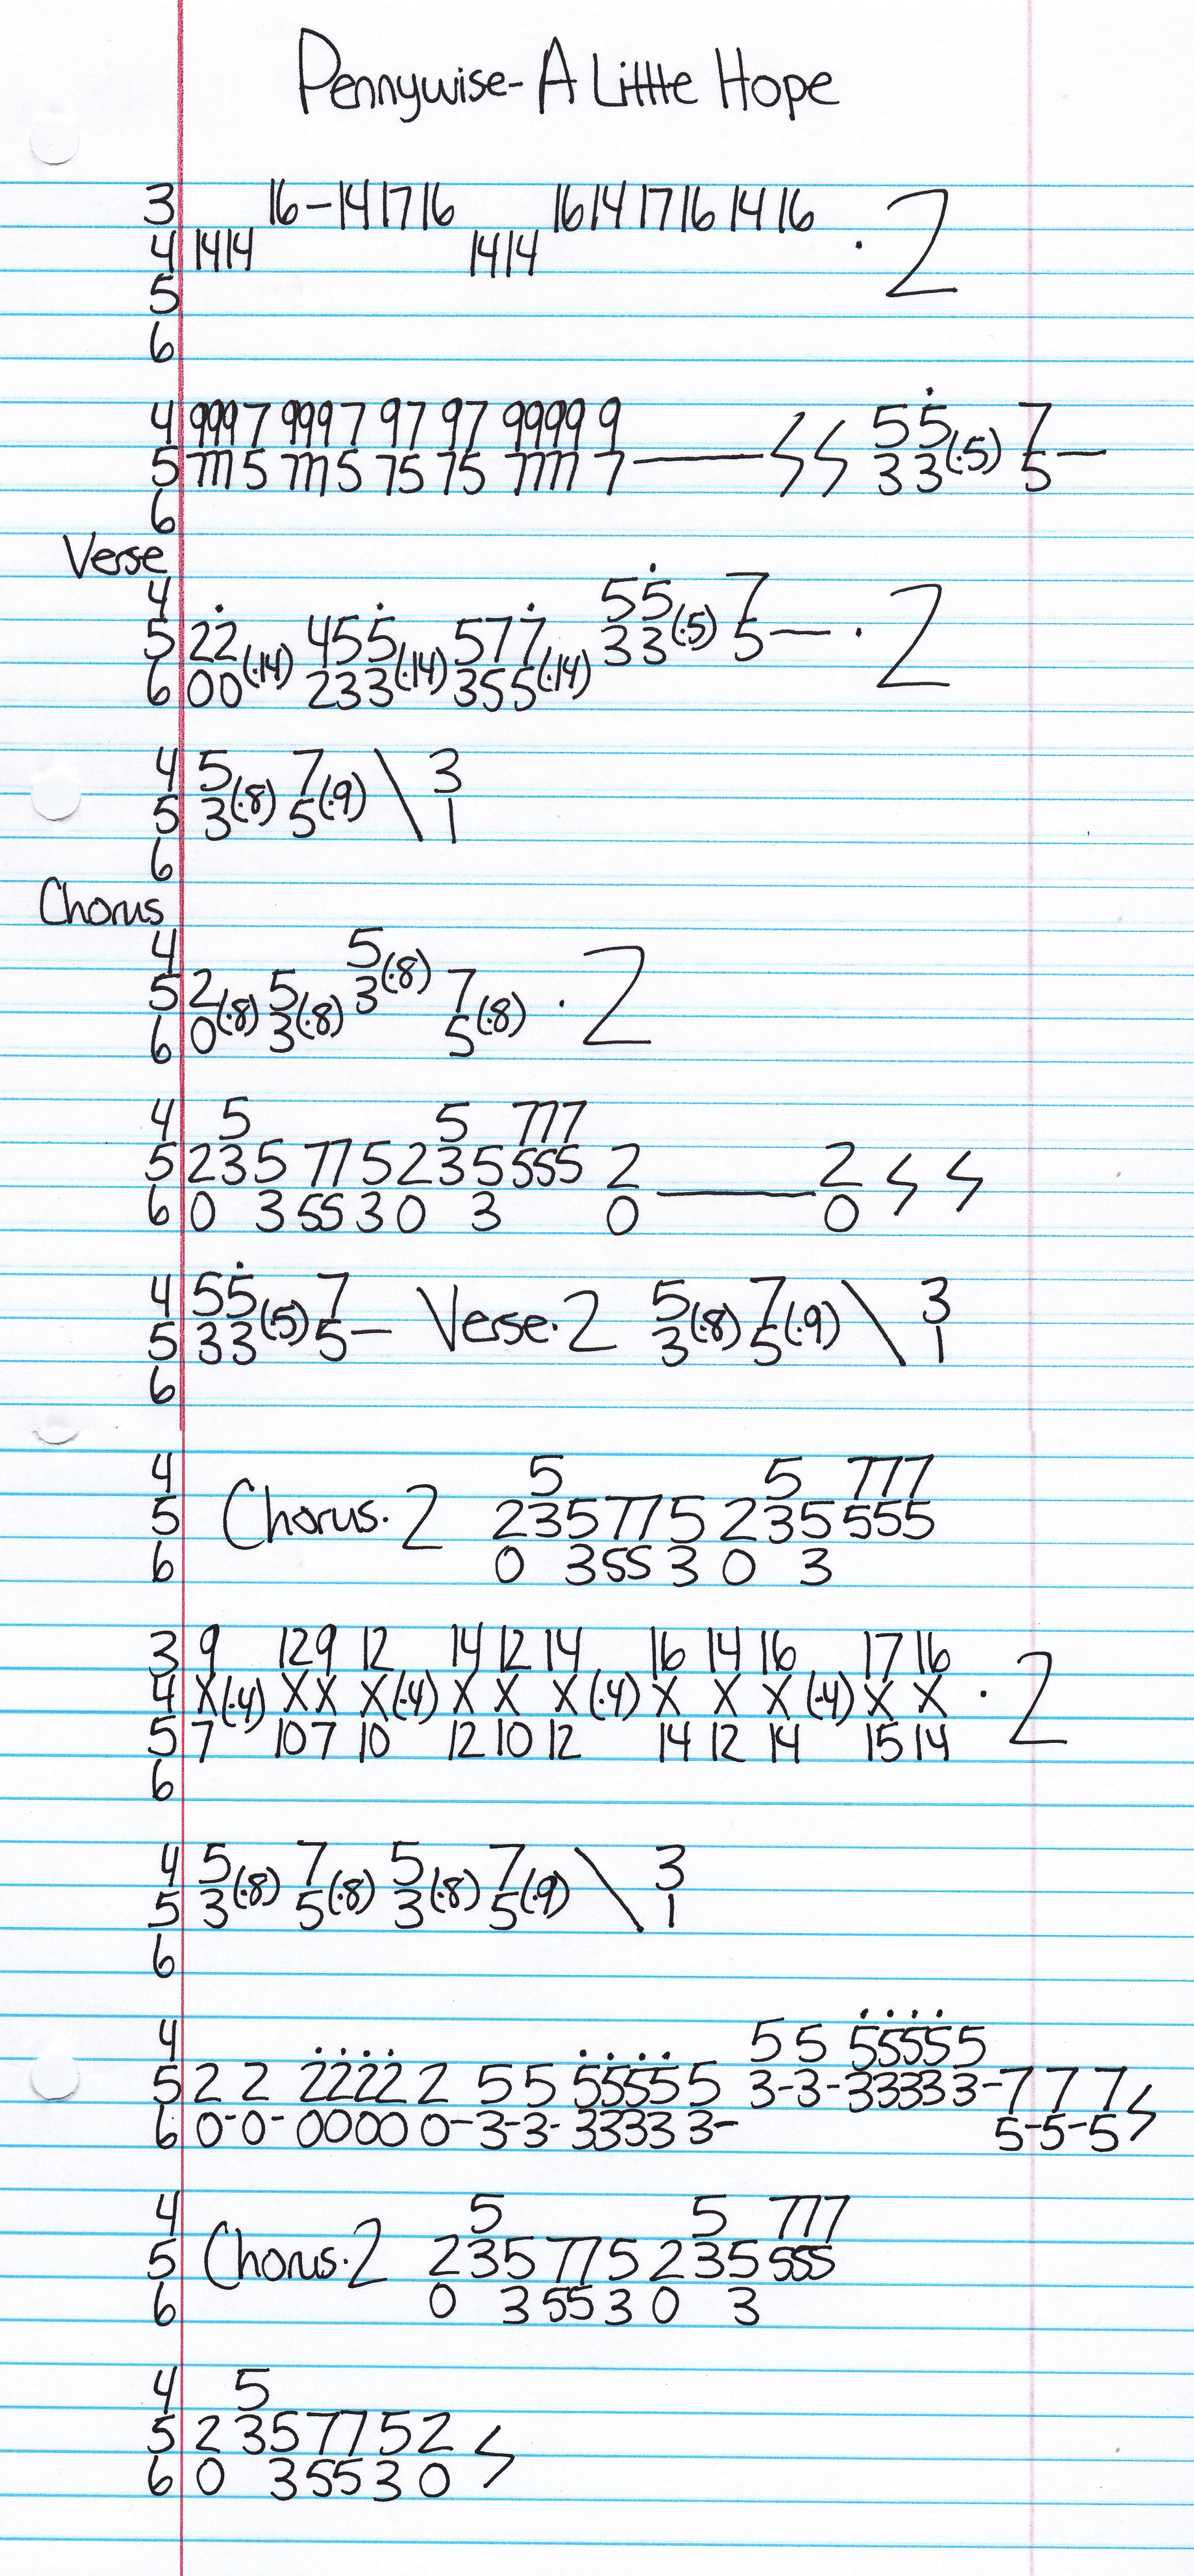 Pennywise- A Little Hope
3 16-14 17 16 16 14 17 16 14 16
4 14 14 14 14 · 2
5
6
4 9997 9997 97 97 9999 9 55 7
5 7775 7775 75 75 7777 7— 33(·5) 5—
6
Verse
4 55 7
5 22 455 577 33(·5) 5— · 2
6 00(·14) 233(·14) 355(·14)
4 5 7 \ 3
5 3(·8) 5(·9) 1
6
Chorus
4 5
5 2 5 3(·8) 7 · 2
6 0(·8) 3(·8) 5(·8)
4 5 5 777
5 235 775 235 555 2 — 2
6 0 3 55 3 0 3 0 0
4 55 7 Verse·2 5 7 \ 3
5 33(·5) 5— 3(·8) 5(·9) 1
6
4 5 5 777
5 Chorus·2 235775 235 555
6 0 3 55 3 0 3
3 9 12 9 12 14 12 14 16 14 16 17 16
4 X(·4) X X X(·4) X X X(·4) X X X(·4) X X · 2
5 7 10 7 10 12 10 12 14 12 14 15 14
6
4 5 7 5 7 \ 3
5 3(·8) 5(·8) 3(·8) 5(·9) 1
6
4 5 5 55555
5 2 2 2222 2 5 5 5555 5 3-3-3333 3-7 7 7
6 0-0-0000 0-3-3-3333 3- 5-5-5
4 5 5 777
5 Chorus·2 235 775 235 555
6 0 3 55 3 0 3
4 5
5 2 357752
6 0 35530